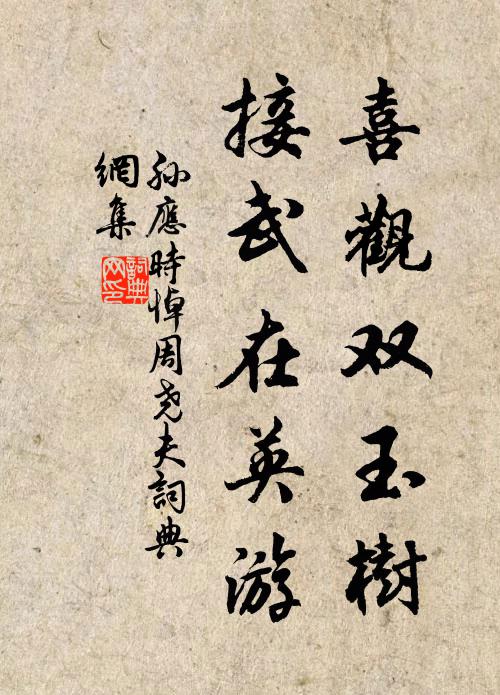 喜觀双玉樹
接武在英游
孙應時悼周尧夫詞典
網集
詞典
网印